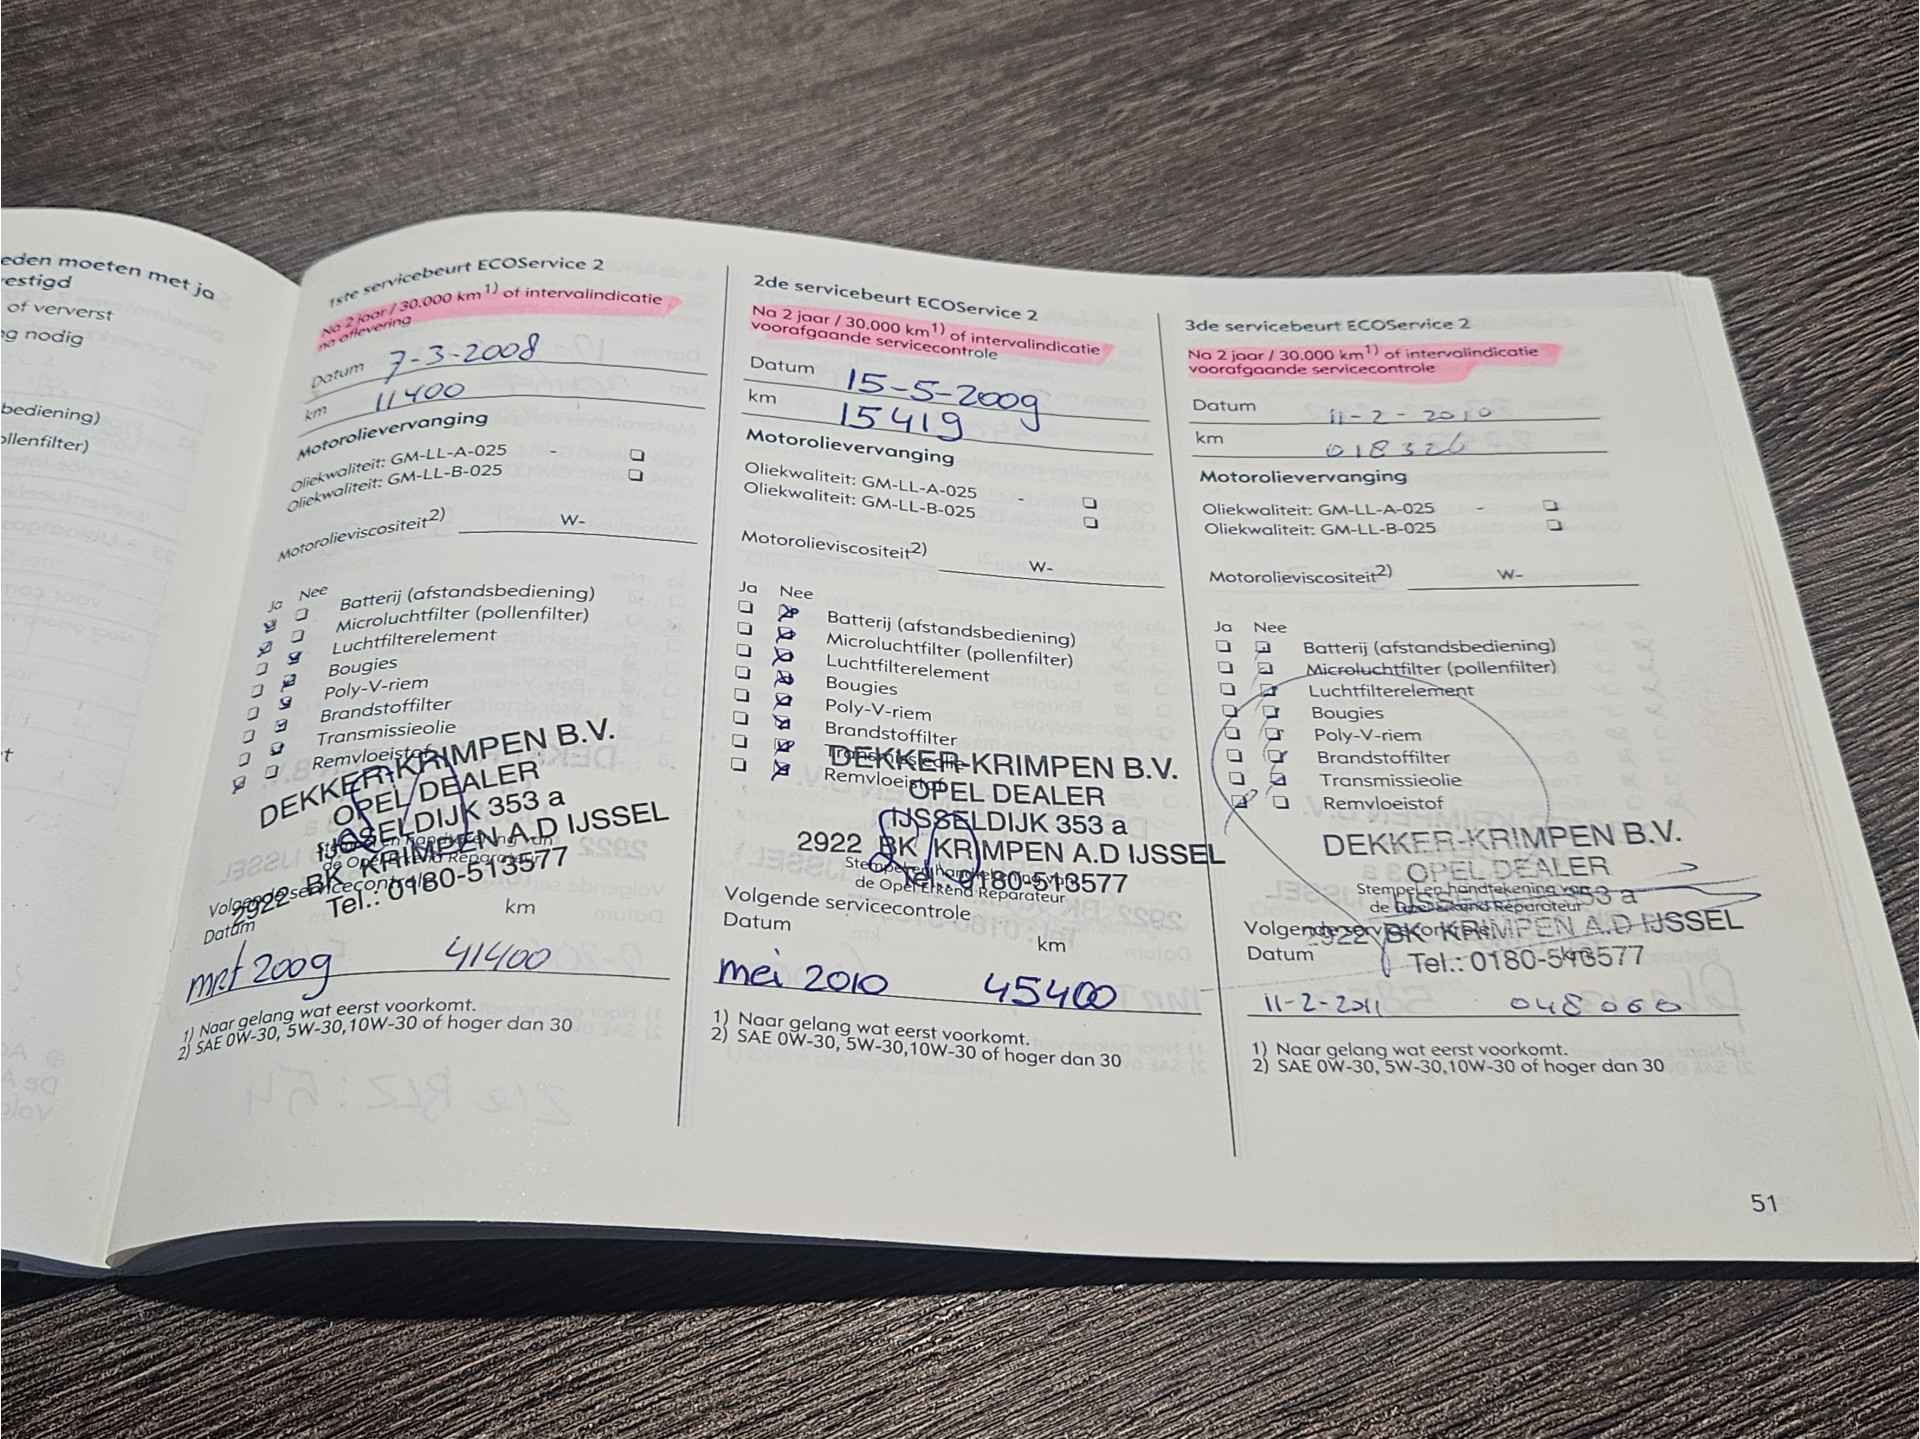 eden moeten met ja
estigd
of ververst
g nodig
bediening)
ollenfilter)
t
1ste servicebeurt ECOService 2
Na 2 jaar / 30.000 km1) of intervalindicatie
na aflevering
Datum 7-3-2008
km 11400
Motorolievervanging
Oliekwaliteit: GM-LL-A-025 -
Oliekwaliteit: GM-LL-B-025
Motorolieviscositeit2) W-
Ja Nee
Batterij (afstandsbediening)
Microluchtfilter (pollenfilter)
Luchtfilterelement
Bougies
Poly-V-riem
Brandstoffilter
Transmissieolie
Remvloeistof
DEKKER-KRIMPEN B.V.
OPEL DEALER
IJSSELDIJK 353 a
2922 BK KRIMPEN A.D IJSSEL
Tel.: 0180-513577
Stempel en handtekening van
de Opel Erkend Reparateur
Volgende servicecontrole
Datum km
mrt 2009 41400
1) Naar gelang wat eerst voorkomt.
2) SAE 0W-30, 5W-30,10W-30 of hoger dan 30
2de servicebeurt ECOService 2
Na 2 jaar / 30.000 km1) of intervalindicatie
voorafgaande servicecontrole
Datum 15-5-2009
km 15419
Motorolievervanging
Oliekwaliteit: GM-LL-A-025 -
Oliekwaliteit: GM-LL-B-025
Motorolieviscositeit2) W-
Ja Nee
Batterij (afstandsbediening)
Microluchtfilter (pollenfilter)
Luchtfilterelement
Bougies
Poly-V-riem
Brandstoffilter
Transmissieolie
Remvloeistof
DEKKER-KRIMPEN B.V.
OPEL DEALER
IJSSELDIJK 353 a
2922 BK KRIMPEN A.D IJSSEL
Tel.: 0180-513577
Stempel en handtekening van
de Opel Erkend Reparateur
Volgende servicecontrole
Datum km
mei 2010 45400
1) Naar gelang wat eerst voorkomt.
2) SAE 0W-30, 5W-30,10W-30 of hoger dan 30
3de servicebeurt ECOService 2
Na 2 jaar / 30.000 km1) of intervalindicatie
voorafgaande servicecontrole
Datum 11-2-2010
km 018326
Motorolievervanging
Oliekwaliteit: GM-LL-A-025 -
Oliekwaliteit: GM-LL-B-025
Motorolieviscositeit2) W-
Ja Nee
Batterij (afstandsbediening)
Microluchtfilter (pollenfilter)
Luchtfilterelement
Bougies
Poly-V-riem
Brandstoffilter
Transmissieolie
Remvloeistof
DEKKER-KRIMPEN B.V.
OPEL DEALER
IJSSELDIJK 353 a
2922 BK KRIMPEN A.D IJSSEL
Tel.: 0180-513577
Stempel en handtekening van
de Opel Erkend Reparateur
Volgende servicecontrole
Datum km
11-2-2011 048000
1) Naar gelang wat eerst voorkomt.
2) SAE 0W-30, 5W-30,10W-30 of hoger dan 30
51